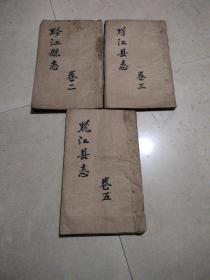 黔江縣志
卷二
黔江县志
卷三
黔江县志
卷五